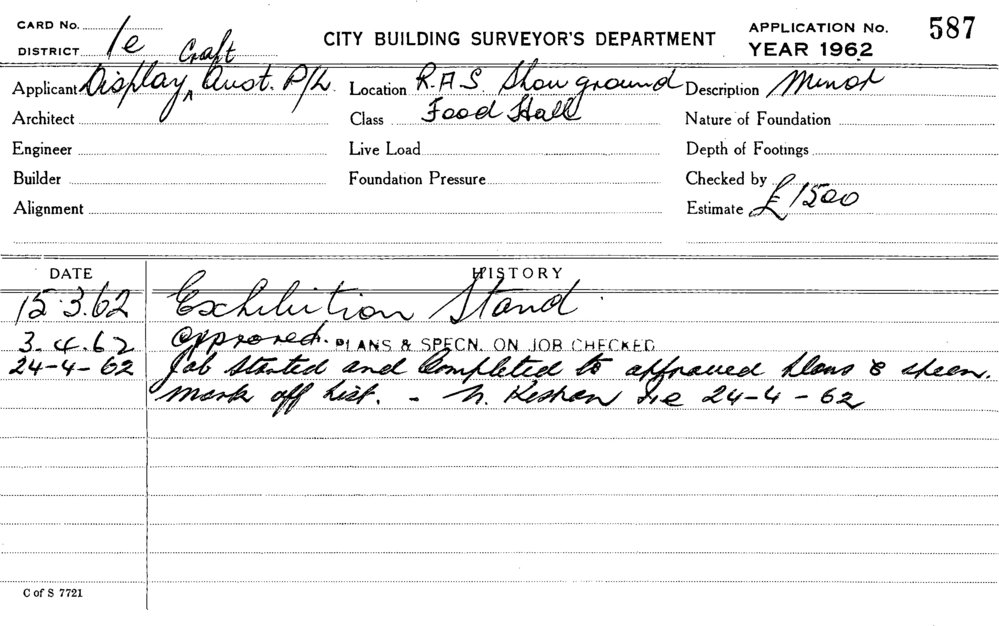 CARD No. 1e
CITY BUILDING SURVEYOR'S DEPARTMENT
APPLICATION No. 587
DISTRICT
YEAR 1962
Applicant Display Craft Aust. P/L
Location R.A.S. Showground
Description Minor
Architect
Class Food Hall
Nature of Foundation
Engineer
Live Load
Depth of Footings
Builder
Foundation Pressure
Checked by
Alignment
Estimate £1500
DATE HISTORY
15.3.62 Exhibition Stand.
3.4.62 Approved. PLANS & SPECN. ON JOB CHECKED
24-4-62 Job started and Completed to approved plans & specn.
mark off list. - 24-4-62
C of S 7721